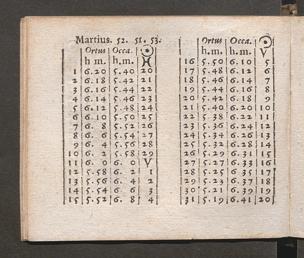 Martius. 52. 51. 53.
Ortus Occa. ☉
h m. h.m. ♓
1 6.20 5.40 20
2 6.18 5.42 21
3 6.16 5.44 22
4 6.14 5.46 23
5 6.12 5.48 24
6 6.10 5.50 25
7 6. 8 5.52 26
8 6. 6 5.54 27
9 6. 4 5.56 28
10 6. 2 5.58 29
11 6. 0 6. 0 V
12 5.58 6. 2 1
13 5.56 6. 4 2
14 5.54 6. 6 3
15 5.52 6. 8 4
Ortus Occa. ☉
h. m. h.m. V
16 5.50 6.10 5
17 5.48 6.12 6
18 5.46 6.14 7
19 5.44 6.16 8
20 5.42 6.18 9
21 5.40 6.20 10
22 5.38 6.22 11
23 5.36 6.24 12
24 5.34 6.26 13
25 5.31 6.29 14
26 5.29 6.31 15
27 5.27 6.33 16
28 5.25 6.35 17
29 5.23 6.37 18
30 5.21 6.39 19
31 5.19 6.41 20